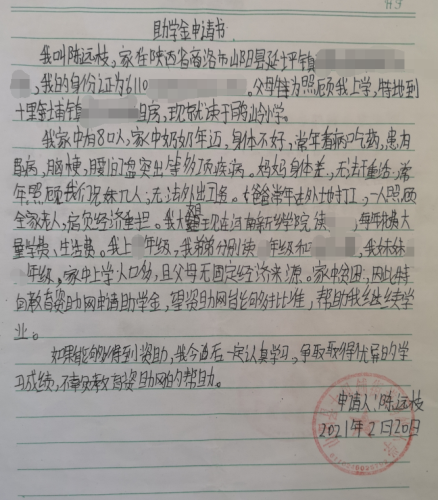 助学金申请书
我叫陈远枝，家在陕西省商洛市山阳县延坪镇
，我的身份证为6110 。父母为照顾我上学，特地到
十里铺镇 租房，现就读于鹃岭小学。
我家中有8口人，家中奶奶年迈，身体不好，常年看病吃药，患有
胃病，脑梗，腰间盘突出等多方面疾病。妈妈身体差，无法干重活，常
年照顾我们兄妹几人，无法外出工作。大爸常年在外地打工，一人照顾
全家老人，肩负经济重担。我大哥现在河南新乡学院读 ，每年花费大
量学费、生活费。我上 年级，我弟弟分别读 年级和 ，我妹妹
年级，家中上学人口多，且父母无固定经济来源。家中贫困，因此特
向教育资助网申请助学金，望资助网能够批准，帮助我继续学
业。
如果能够得到资助，我今后一定认真学习，争取取得优异的学
习成绩，不辜负教育资助网的帮助。
申请人：陈远枝
2021年2月20日